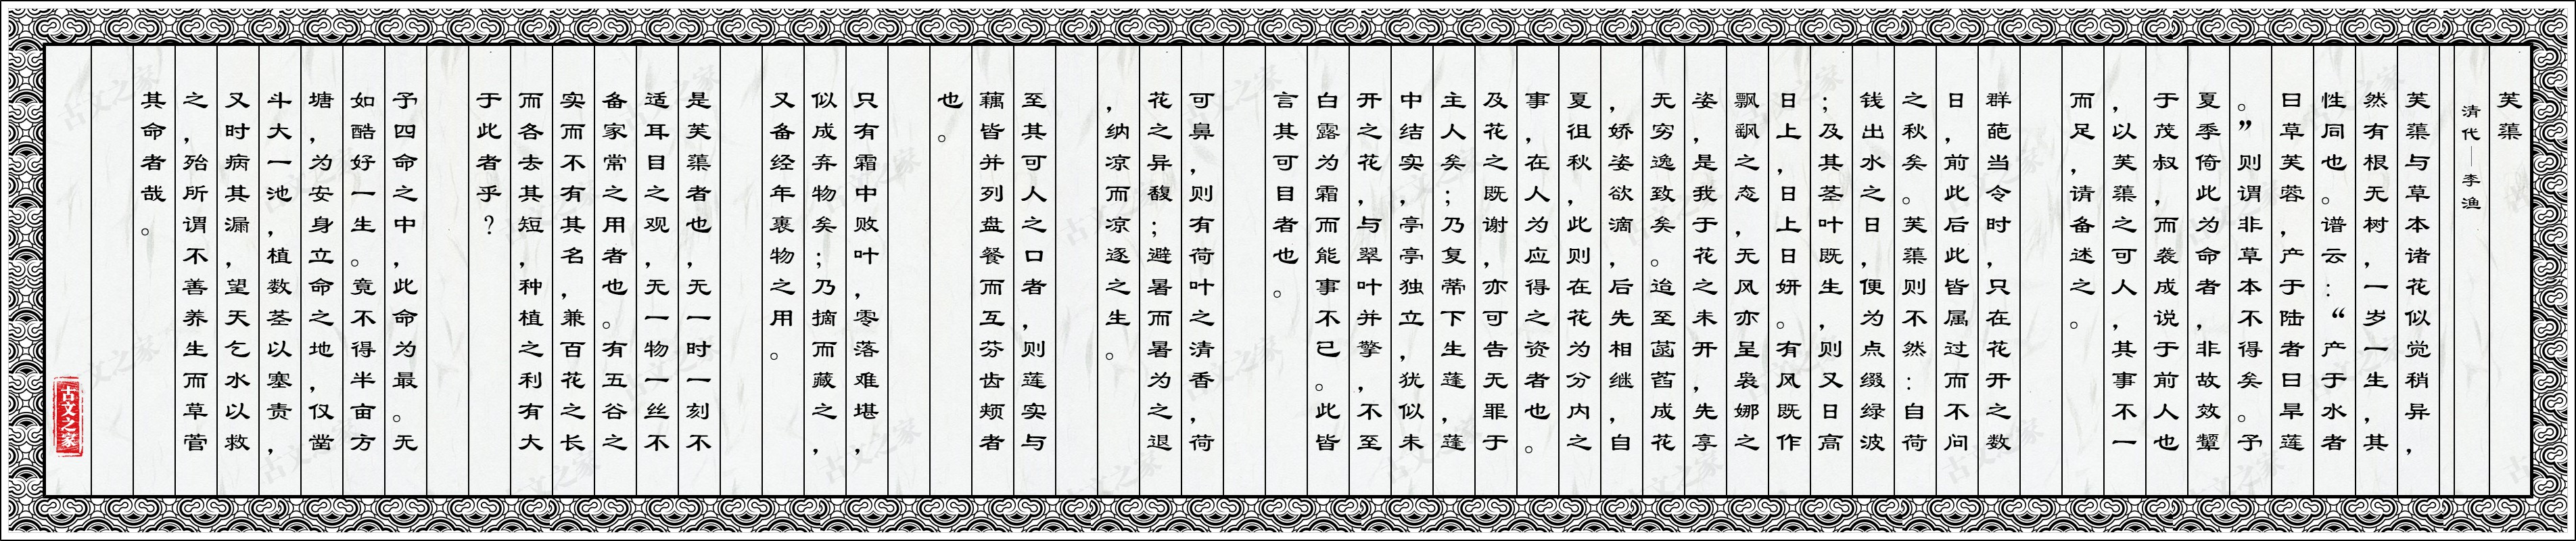 芙蕖
清代—李渔
芙蕖与草本诸花似觉稍异，
然有根无树，一岁一生，其
性同也。谱云：“产于水者
曰草芙蓉，产于陆者曰旱莲
。”则谓非草本不得矣。予
夏季倚此为命者，非故效颦
于茂叔，而袭成说于前人也
，以芙蕖之可人，其事不一
而足，请备述之。
群葩当令时，只在花开之数
日，前此后此皆属过而不问
之秋矣。芙蕖则不然：自荷
钱出水之日，便为点缀绿波
；及其茎叶既生，则又日高
日上，日上日妍。有风既作
飘飖之态，无风亦呈袅娜之
姿，是我于花之未开，先享
无穷逸致矣。迨至菡萏成花
，娇姿欲滴，后先相继，自
夏徂秋，此则在花为分内之
事，在人为应得之资者也。
及花之既谢，亦可告无罪于
主人矣；乃复蒂下生蓬，蓬
中结实，亭亭独立，犹似未
开之花，与翠叶并擎，不至
白露为霜而能事不已。此皆
言其可目者也。
可鼻，则有荷叶之清香，荷
花之异馥；避暑而暑为之退
，纳凉而凉逐之生。
至其可人之口者，则莲实与
藕皆并列盘餐而互芬齿颊者
也。
只有霜中败叶，零落难堪，
似成弃物矣；乃摘而藏之，
又备经年裹物之用。
是芙蕖者也，无一时一刻不
适耳目之观，无一物一丝不
备家常之用者也。有五谷之
实而不有其名，兼百花之长
而各去其短，种植之利有大
于此者乎？
予四命之中，此命为最。无
如酷好一生。竟不得半亩方
塘，为安身立命之地，仅凿
斗大一池，植数茎以塞责，
又时病其漏，望天乞水以救
之，殆所谓不善养生而草菅
其命者哉。
古文之家